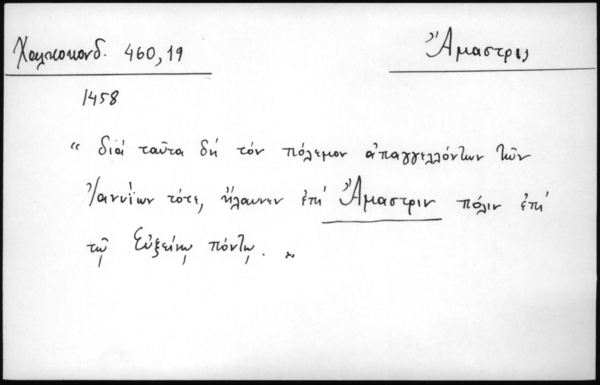 Χαλκοκονδ. 460,19
Ἄμαστρις
1458
“ διά ταῦτα δή τόν πόλεμον ἀπαγγελλόντων τῶν
Ἰανυΐων τότε, ἤλαυνεν ἐπί Ἄμαστριν πόλιν ἐπί
τῷ Εὐξείνῳ πόντῳ. ”